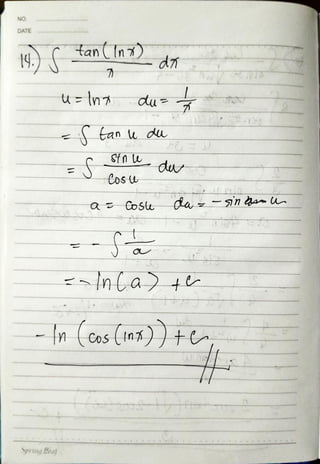 NO.
DATE
14.) ∫ tan(lnx)/x dx
u = lnx du = 1/x
= ∫ tan u du
= ∫ sin u / cos u du
a = cosu da = - sin u
= - ∫ 1/a
= - ln(a) + c
- ln (cos(lnx)) + c //